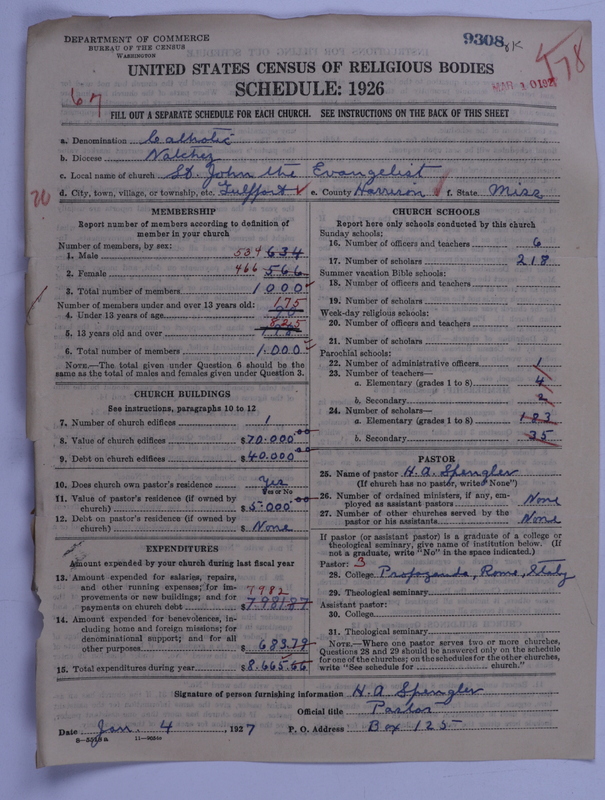 DEPARTMENT OF COMMERCE
BUREAU OF THE CENSUS
WASHINGTON
9308
UNITED STATES CENSUS OF RELIGIOUS BODIES
SCHEDULE: 1926
67
FILL OUT A SEPARATE SCHEDULE FOR EACH CHURCH. SEE INSTRUCTIONS ON THE BACK OF THIS SHEET
a. Denomination Catholic
b. Diocese Natchez
c. Local name of church St. John the Evangelist
d. City, town, village, or township, etc. Gulfport e. County Harrison f. State Miss
MEMBERSHIP
Report number of members according to definition of
member in your church
Number of members, by sex:
1. Male 534 634
2. Female 466 566
3. Total number of members 1000
Number of members under and over 13 years old:
4. Under 13 years of age 175
5. 13 years old and over 825
6. Total number of members 1.000
NOTE.—The total given under Question 6 should be the
same as the total of males and females given under Question 3.
CHURCH BUILDINGS
See instructions, paragraphs 10 to 12
7. Number of church edifices 1
8. Value of church edifices $70.000.00
9. Debt on church edifices $40.000.00
10. Does church own pastor's residence Yes
Yes or No
11. Value of pastor's residence (if owned by
church) $5.000.00
12. Debt on pastor's residence (if owned by
church) $ None
EXPENDITURES
Amount expended by your church during last fiscal year
13. Amount expended for salaries, repairs,
and other running expenses; for im-
provements or new buildings; and for
payments on church debt $7981.87
7982
14. Amount expended for benevolences, in-
cluding home and foreign missions; for
denominational support; and for all
other purposes $683.79
15. Total expenditures during year $8.665.66
CHURCH SCHOOLS
Report here only schools conducted by this church
Sunday schools:
16. Number of officers and teachers 6
17. Number of scholars 218
Summer vacation Bible schools:
18. Number of officers and teachers
19. Number of scholars
Week-day religious schools:
20. Number of officers and teachers
21. Number of scholars
Parochial schools:
22. Number of administrative officers 1
23. Number of teachers—
a. Elementary (grades 1 to 8) 4
b. Secondary 2
24. Number of scholars—
a. Elementary (grades 1 to 8) 183
b. Secondary 35
PASTOR
25. Name of pastor H. A. Spengler
(If church has no pastor, write "None")
26. Number of ordained ministers, if any, em-
ployed as assistant pastors None
27. Number of other churches served by the
pastor or his assistants None
If pastor (or assistant pastor) is a graduate of a college or
theological seminary, give name of institution below. (If
not a graduate, write "No" in the space indicated.)
Pastor: 3
28. College Propoganda, Rome, Italy
29. Theological seminary
Assistant pastor:
30. College
31. Theological seminary
NOTE.—Where one pastor serves two or more churches,
Questions 28 and 29 should be answered only on the schedule
for one of the churches; on the schedules for the other churches,
write "See schedule for church."
Signature of person furnishing information H. A. Spengler
Official title Pastor
Date Jan. 4, 1927 P. O. Address Box 125